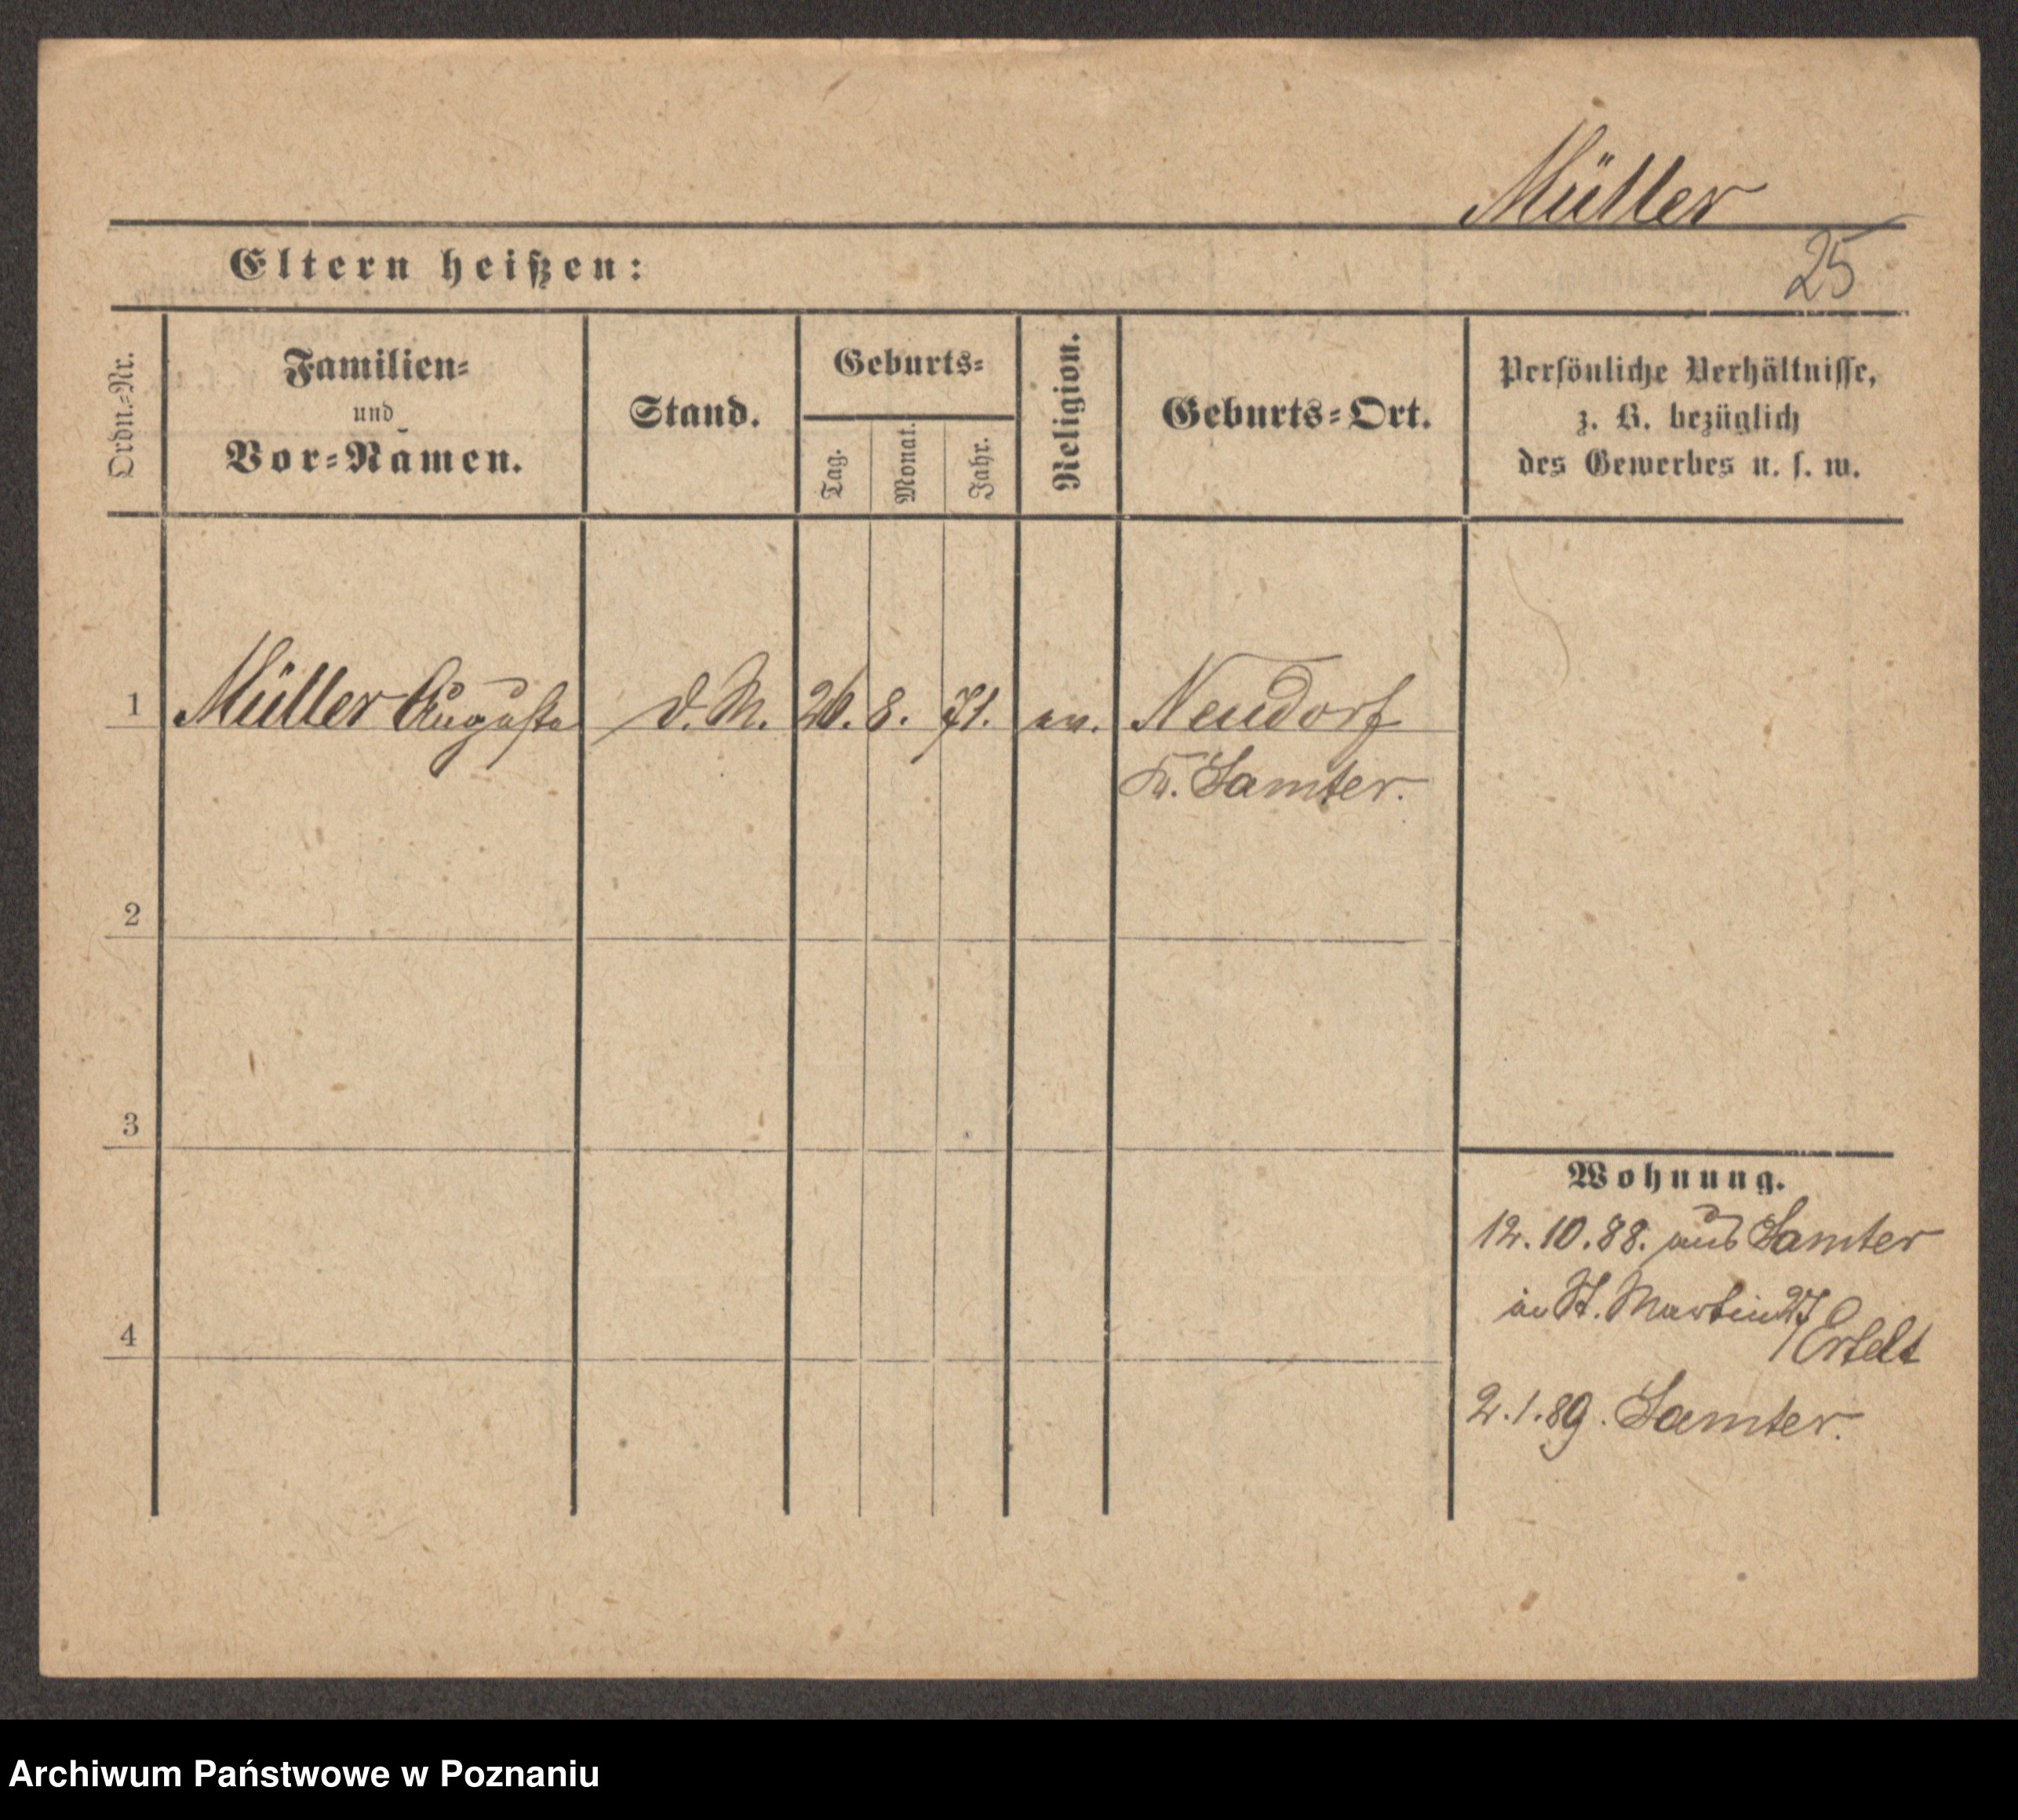 Müller
25
Eltern heißen:
Ordn.-Nr.
Familien-
und
Vor-Namen.
Stand.
Geburts-
Tag.
Monat.
Jahr.
Religion.
Geburts-Ort.
Persönliche Verhältnisse,
z. B. bezüglich
des Gewerbes u. s. w.
1 Müller Auguste d. M. 26. 8. 71. ev. Neudorf
Kr. Samter.
2
3
4
Wohnung.
12. 10. 88. aus Samter
in St. Martin 27
2. 1. 89. Samter.
Archiwum Państwowe w Poznaniu